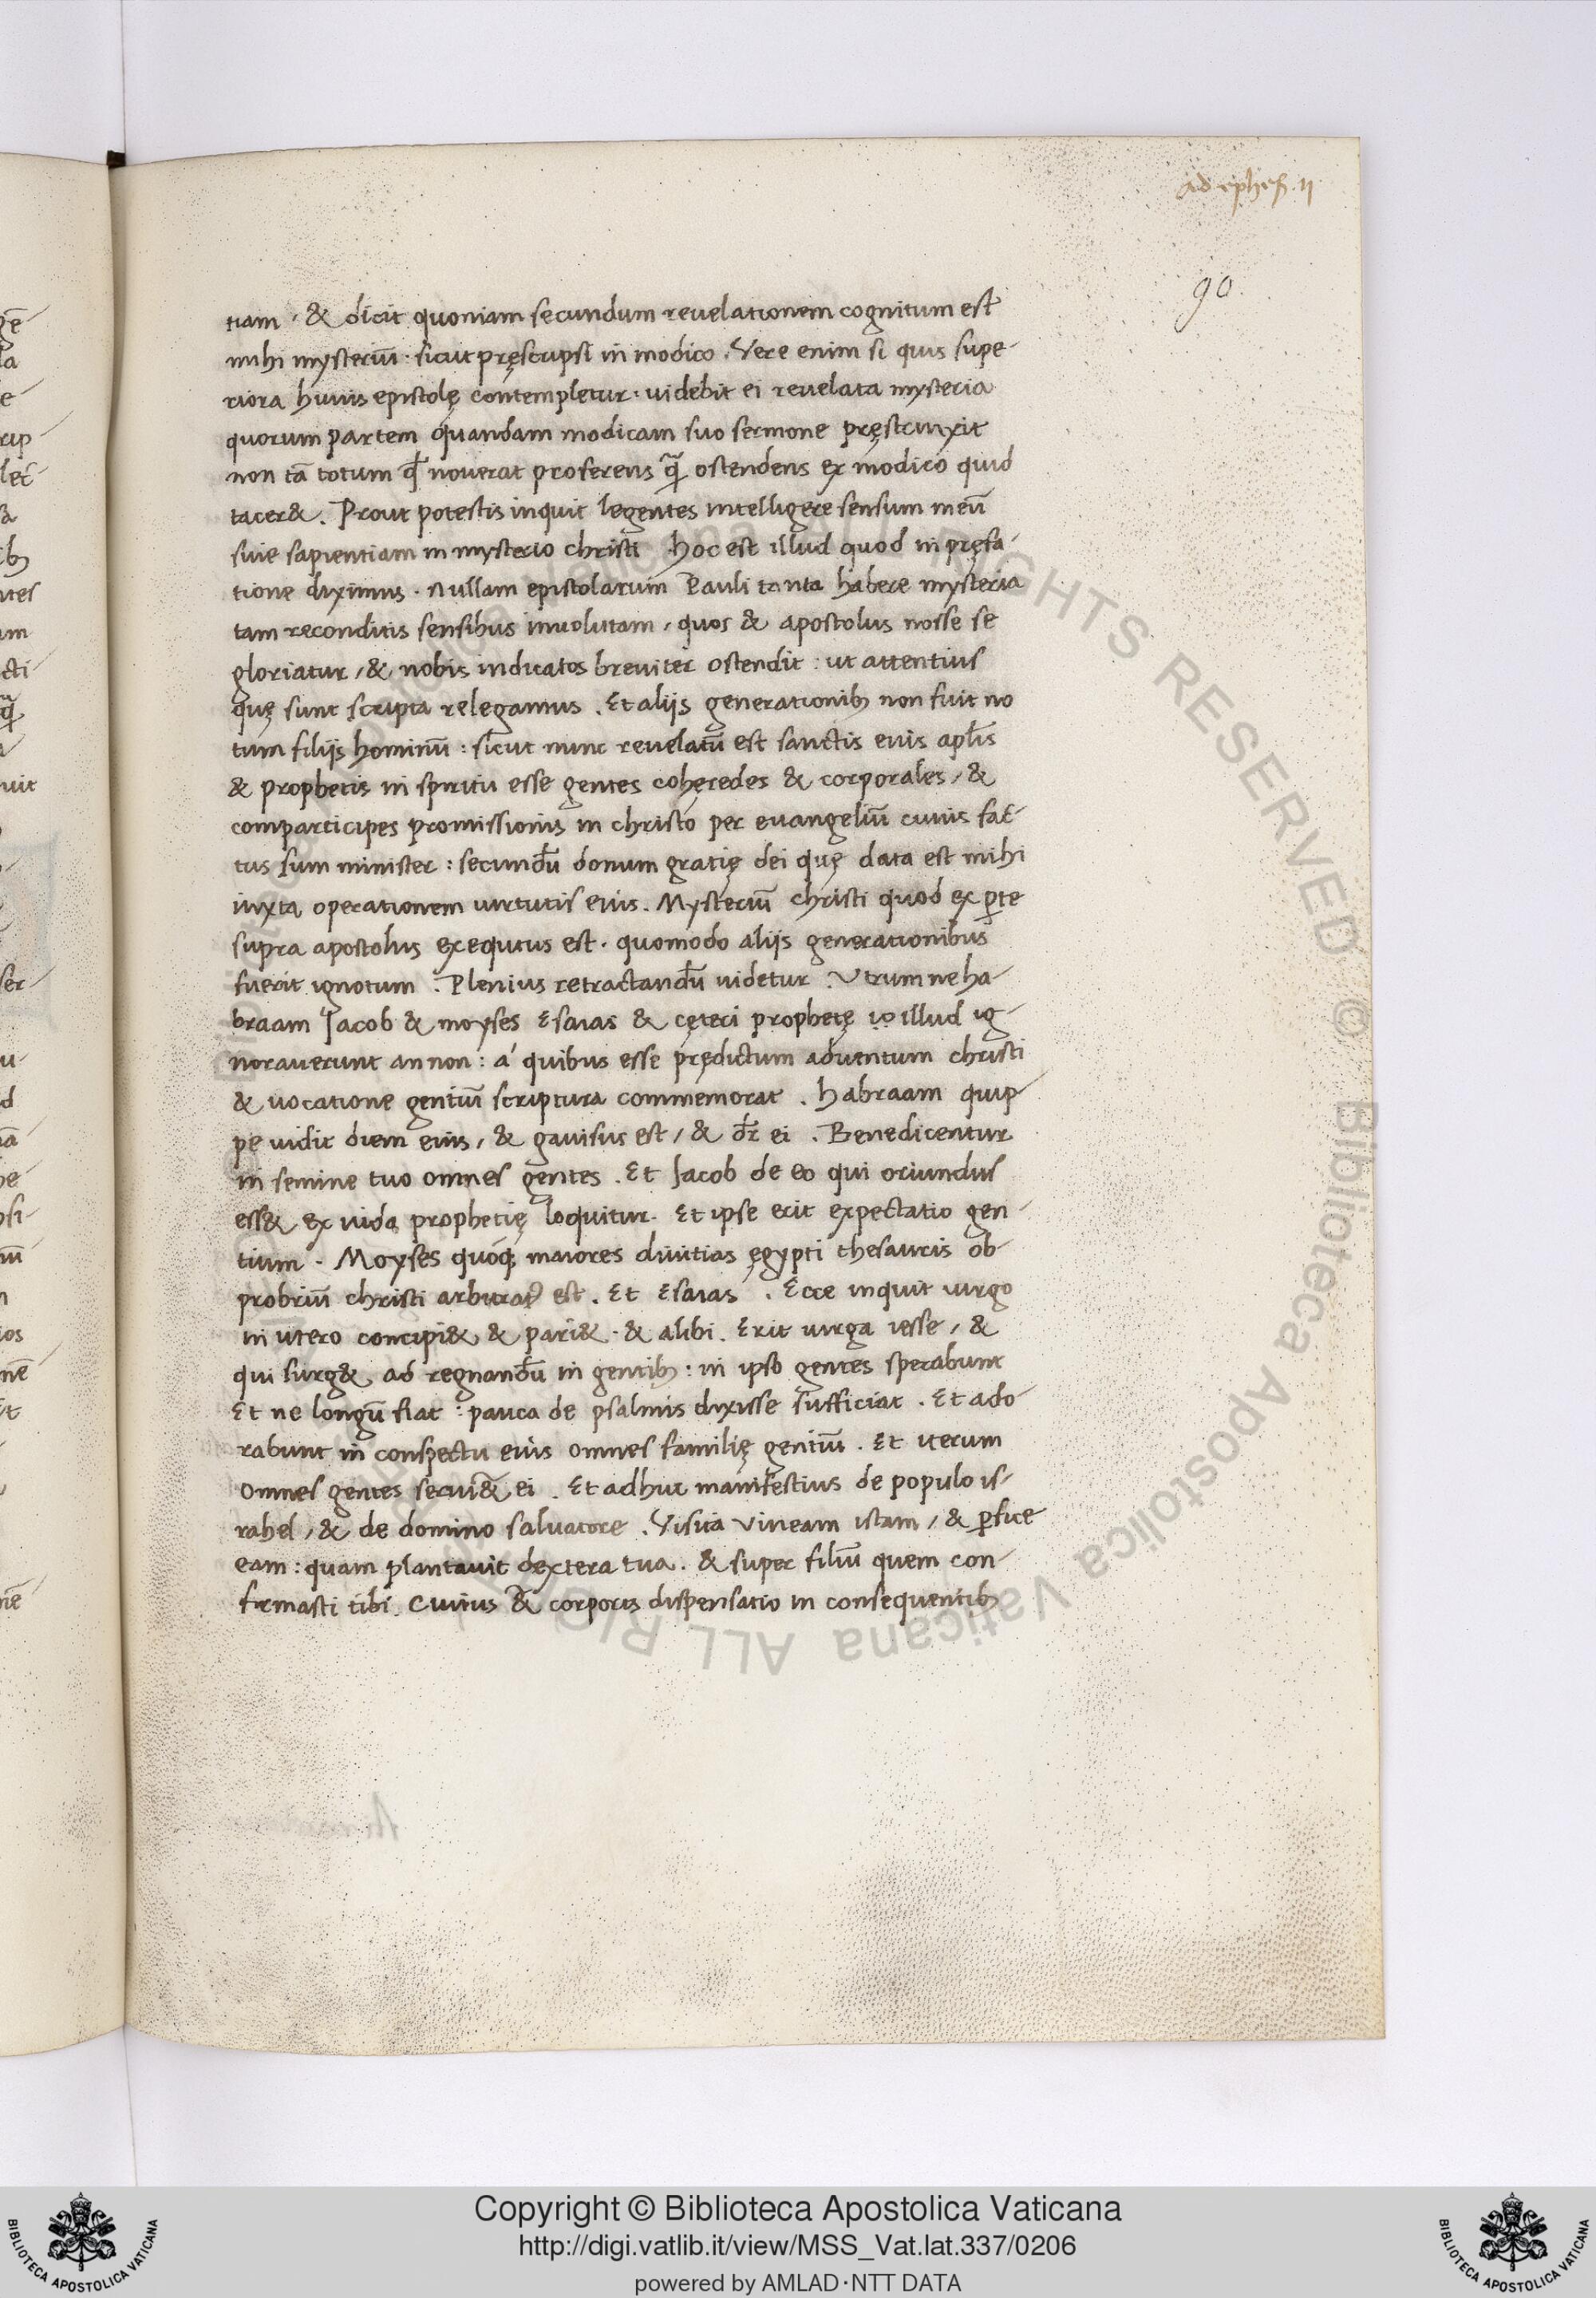 ad ephes. ii
90.
tiam · & dicit quoniam secundum reuelationem cognitum est
mihi mysteriū : sicut pręscripsi in modico . Vere enim si quis supe-
riora huius epistolę contempletur · uidebit ei reuelata mysteria
quorum partem quandam modicam suo sermone pręstrinxit
non tā totum qđ nouerat proferens q̄ ostendens ex modico quid
tacer& . Prout potestis inquit legentes intelligere sensum meū
siue sapientiam in mysterio christi hoc est illud quod in pręfa-
tione diximus · nullam epistolarum Pauli tanta habere mysteria
tam reconditis sensibus inuolutam , quos & apostolus nosse se
gloriatur , & nobis indicatos breviter ostendit : ut attentius
quę sunt scripta relegamus . Et aliis generationib; non fuit no
tum filijs hominū : sicut nunc reuelatū est sanctis euis apłis
& prophetis in spiritu esse gentes coheredes & corporales , &
comparticipes promissionis in christo per euangeliū cuius fac-
tus sum minister : secundū donum gratię dei quę data est mihi
iuxta operationem uirtutis eius . Mysteriū christi quod ex ꝑte
supra apostolus exequtus est · quomodo aliis generationibus
fuerit ignotum . Plenius retractandū uidetur . Vtrum ne ha-
braam Jacob & moyses Esaias & cęteri prophetę illud ig-
norauerunt an non : á quibus esse prędictum aduentum christi
& uocatione gentiū scriptura commemorat . habraam quip-
pe uidit diem eius , & gauisus est , & dr̄ ei . Benedicentur
in semine tuo omnes gentes . Et Jacob de eo qui oriundus
ess& ex iuda prophetię loquitur . Et ipse erit expectatio gen-
tium . Moyses quoq; maiores diuitias ęgypti thesauris ob-
probriū christi arbitrat9 est . Et Esaias . Ecce inquit uirgo
in utero concipi& & pari& · & alibi . Erit uirga iesse , &
qui surg& ad regnandū in gentib; : in ipso gentes sperabunt
Et ne longū fiat : pauca de psalmis dixisse sufficiat . Et ado-
rabunt in conspectu eius omnes familię gentiū . Et iterum
omnes gentes serui&̄ ei . Et adhuc manifestius de populo is-
rahel , & de domino saluatore . Visita vineam istam , & ꝑfice
eam : quam plantauit dextera tua . & super filiū quem con-
firmasti tibi . Cuius &̄ corporis dispensatio in consequentib;
Copyright © Biblioteca Apostolica Vaticana
http://digi.vatlib.it/view/MSS_Vat.lat.337/0206
powered by AMLAD·NTT DATA